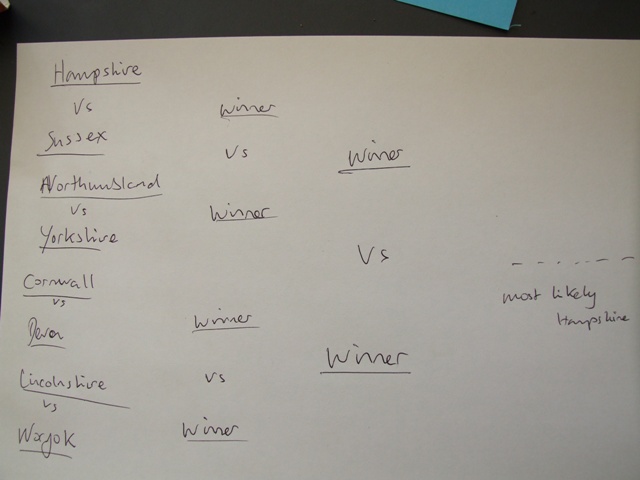 Hampshire
vs
Sussex
Northumbland
vs
Yorkshire
Cornwall
vs
Devon
Lincolnshire
vs
Winner
vs
Winner
Winner
vs
Winner
Winner
Vs
Winner
most likely
Hampshire